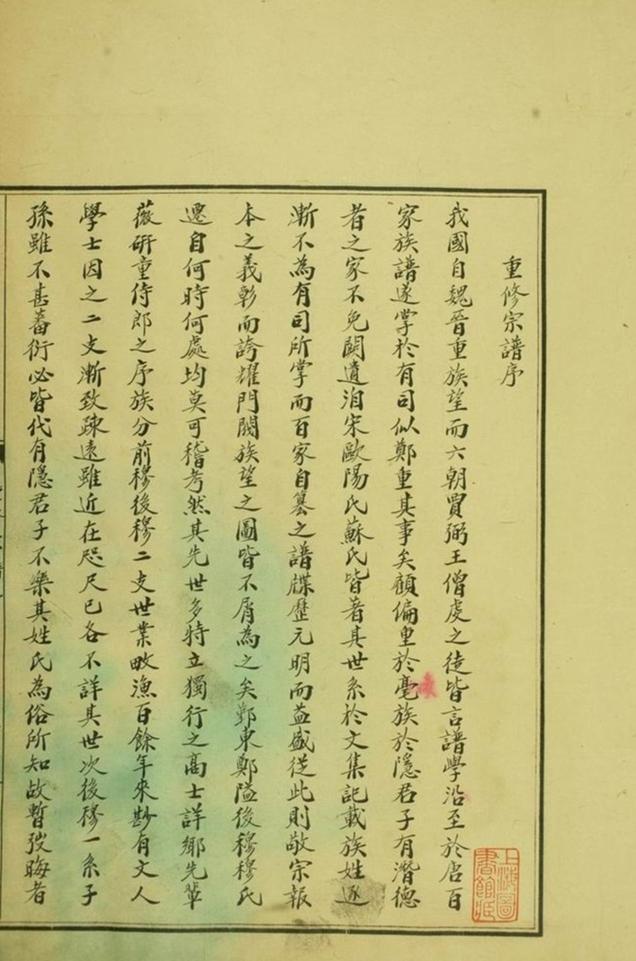 重修宗譜序
我國自魏晉重族望而六朝賈弼王僧虔之徒皆言譜學沿至於唐百
家族譜遂掌於有司似鄭重其事矣顧偏重於豪族於隱君子有潛德
者之家不免闕遺洎宋歐陽氏蘇氏皆著其世系於文集記載族姓遂
漸不為有司所掌而百家自纂之譜牒歷元明而益盛從此則敬宗報
本之義彰而誇耀門閥族望之圖皆不屑為之矣鄞東鄭隘後穆穆氏
遷自何時何處均莫可稽考然其先世多特立獨行之高士詳鄉先輩
薇研童侍郎之序族分前穆後穆二支世業畋漁百餘年來尠有文人
學士因之二支漸致疎遠雖近在咫尺已各不詳其世次後穆一系子
孫雖不甚蕃衍必皆代有隱君子不樂其姓氏為俗所知故暫弢晦者
上海圖書館藏